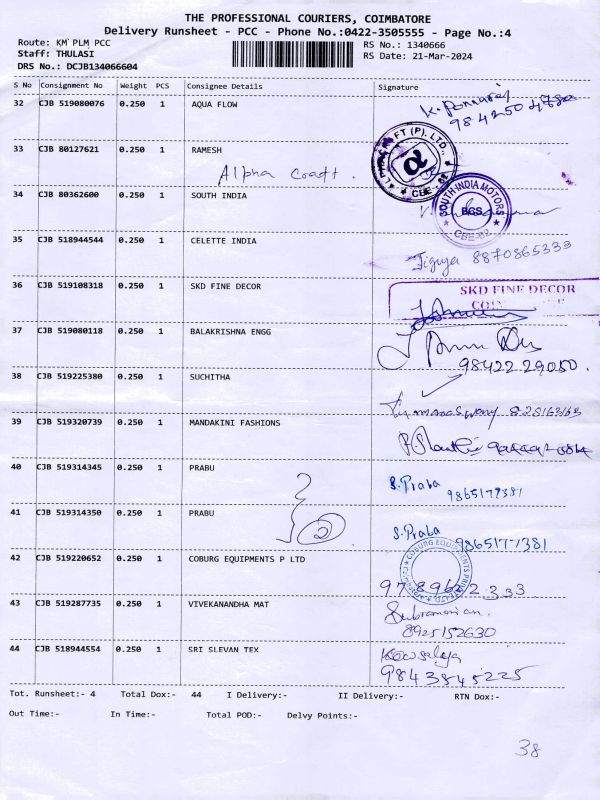 THE PROFESSIONAL COURIERS, COIMBATORE
Delivery Runsheet - PCC - Phone No.:0422-3505555 - Page No.:4
Route: KM PLM PCC
Staff: THULASI
DRS No.: DCJB134066604
RS No.: 1340666
RS Date: 21-Mar-2024
S No Consignment No Weight PCS Consignee Details Signature
32 CJB 519080076 0.250 1 AQUA FLOW
33 CJB 80127621 0.250 1 RAMESH
Alpha
34 CJB 80362600 0.250 1 SOUTH INDIA
SOUTH INDIA MOTORS
BGS
CBE-62
35 CJB 518944544 0.250 1 CELETTE INDIA
8870865333
36 CJB 519108318 0.250 1 SKD FINE DECOR
SKD FINE DECOR
37 CJB 519080118 0.250 1 BALAKRISHNA ENGG
98422 29050.
38 CJB 519225380 0.250 1 SUCHITHA
39 CJB 519320739 0.250 1 MANDAKINI FASHIONS
40 CJB 519314345 0.250 1 PRABU
S. Praba
9865177381
41 CJB 519314350 0.250 1 PRABU
2
S. Praba
9865177381
42 CJB 519220652 0.250 1 COBURG EQUIPMENTS P LTD
43 CJB 519287735 0.250 1 VIVEKANANDHA MAT
8925152630
44 CJB 518944554 0.250 1 SRI SLEVAN TEX
Kowsalya
9843845225
Tot. Runsheet:- 4 Total Dox:- 44 I Delivery:- II Delivery:- RTN Dox:-
Out Time:- In Time:- Total POD:- Delvy Points:-
38